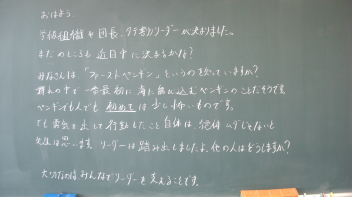 おはよう。
今何組織や団長、タテ割りリーダーが決まりました。
まだのところも近日中に決まるかな？
みなさんは、"ファーストペンギン"というのを知っていますか？
群れの中で一番最初に海に飛び込むペンギンのことだそうです
ペンギンでも人でも初めては少し怖いものです。
でも勇気を出して行動したこと自体は、絶対ムダじゃないと
先生は思います。リーダーは踏み出しましたよ。他の人はどうしますか？
大切なのはみんなでリーダーを支えることです。